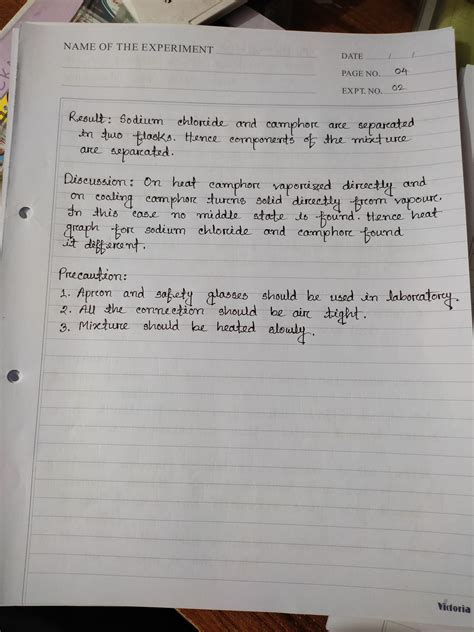 NAME OF THE EXPERIMENT
DATE / /
PAGE NO. 04
EXPT. NO. 02
Result: Sodium chloride and camphor are separated
in two flasks. Hence components of the mixture
are separated.
Discussion: On heat camphor vaporized directly and
on cooling camphor turns solid directly from vapour.
In this case no middle state is found. Hence heat
graph for sodium chloride and camphor found
it different.
Precaution:
1. Apron and safety glasses should be used in laboratory.
2. All the connection should be air tight.
3. Mixture should be heated slowly.
Victoria